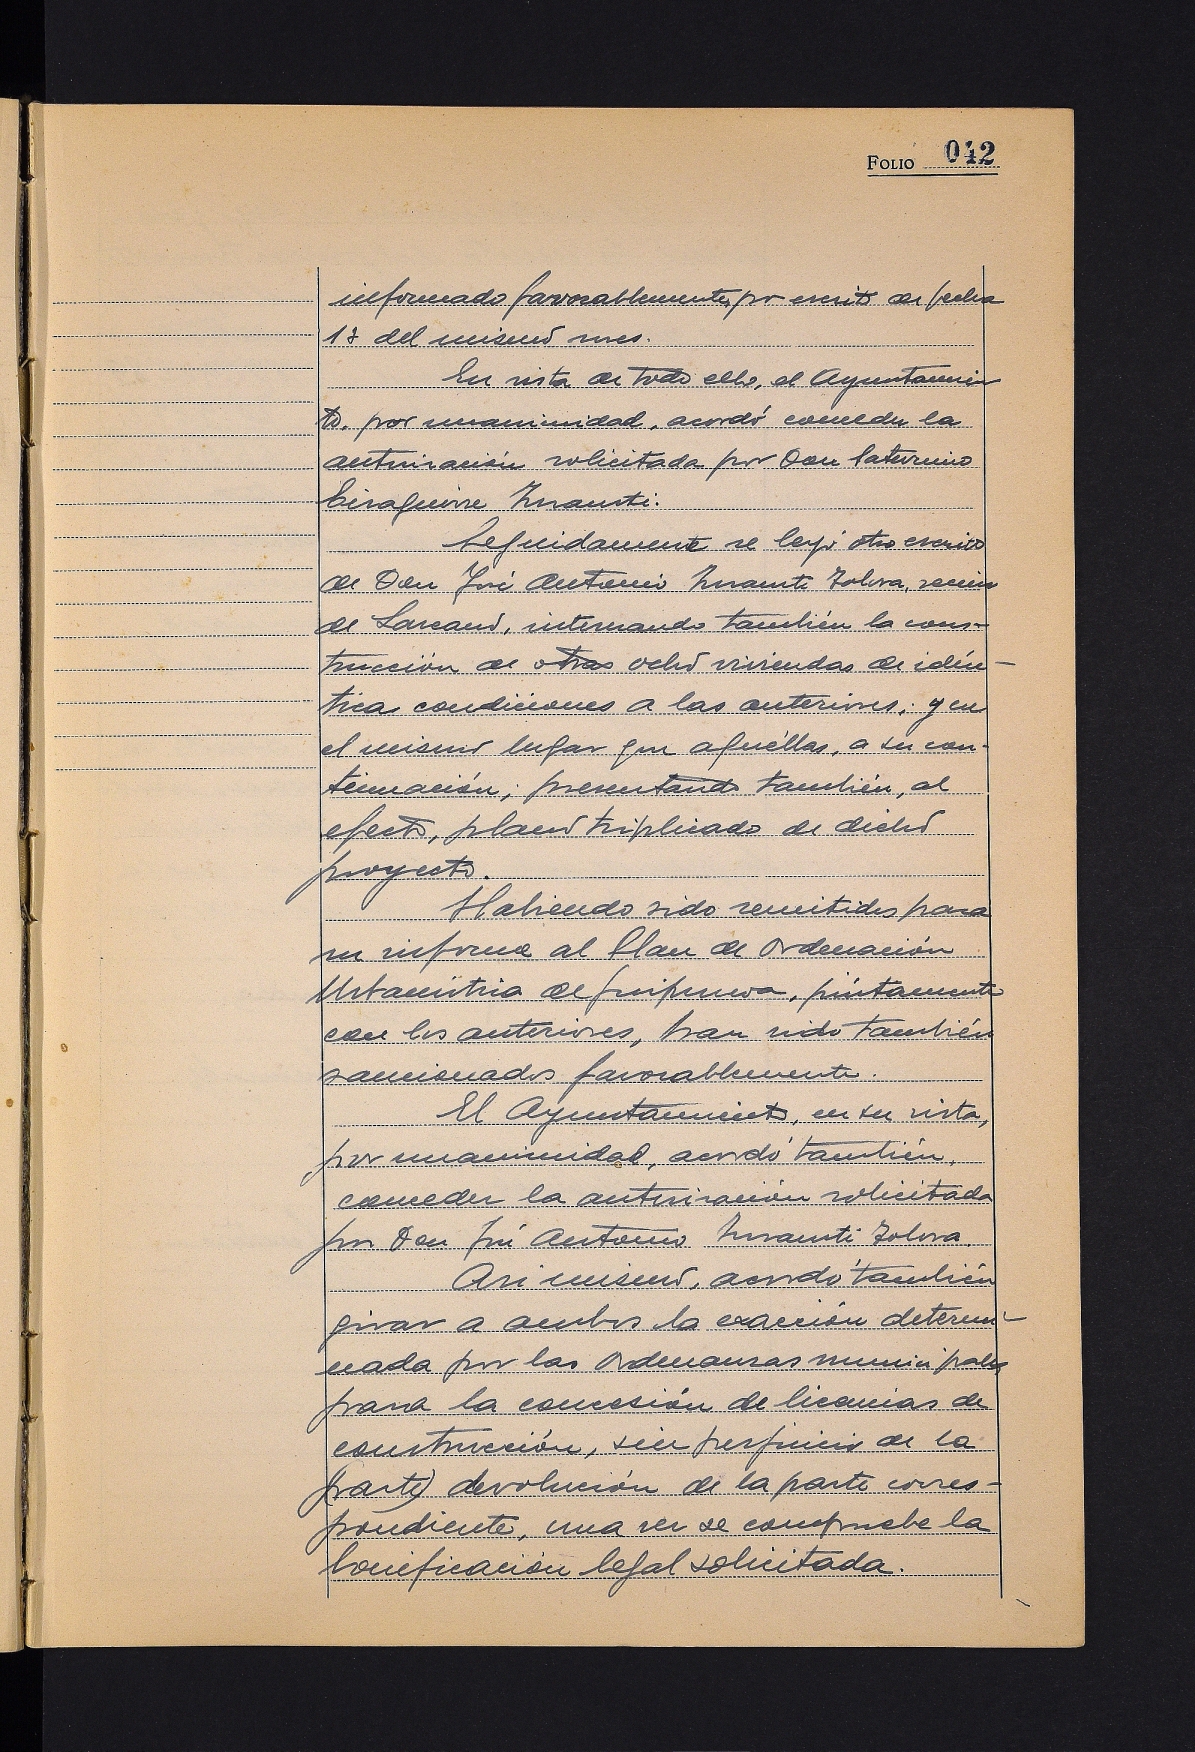 FOLIO 042
informado favorablemente, por escrito de fecha
13 del mismo mes.
En vista de todo ello, el Ayuntamien
to, por unanimidad, acordó conceder la
autorización solicitada por Don Saturnino
Eizaguirre Insausti.
Seguidamente se leyó otro escrito
de Don José Antonio Insausti Zolora, vecino
de Lazcano, interesando también la cons-
trucción de otras ocho viviendas de idén-
ticas condiciones a las anteriores, y en
el mismo lugar que aquéllas, a su con-
tinuación; presentando también, al
efecto, plano triplicado de dicho
proyecto.
Habiendo sido remitidos para
su informe al Plan de Ordenación
Urbanística de Guipuzcoa, juntamente
con los anteriores, han sido también
sancionados favorablemente.
El Ayuntamiento, en su vista,
por unanimidad, acordó también,
conceder la autorización solicitada
por Don José Antonio Insausti Zolora.
Asi mismo, acordó también
girar a ambos la exacción determi-
nada por las Ordenanzas municipales
para la concesión de licencias de
construcción, sin perjuicio de la
(parte) devolución de la parte corres-
pondiente, una vez se compruebe la
bonificación legal solicitada.